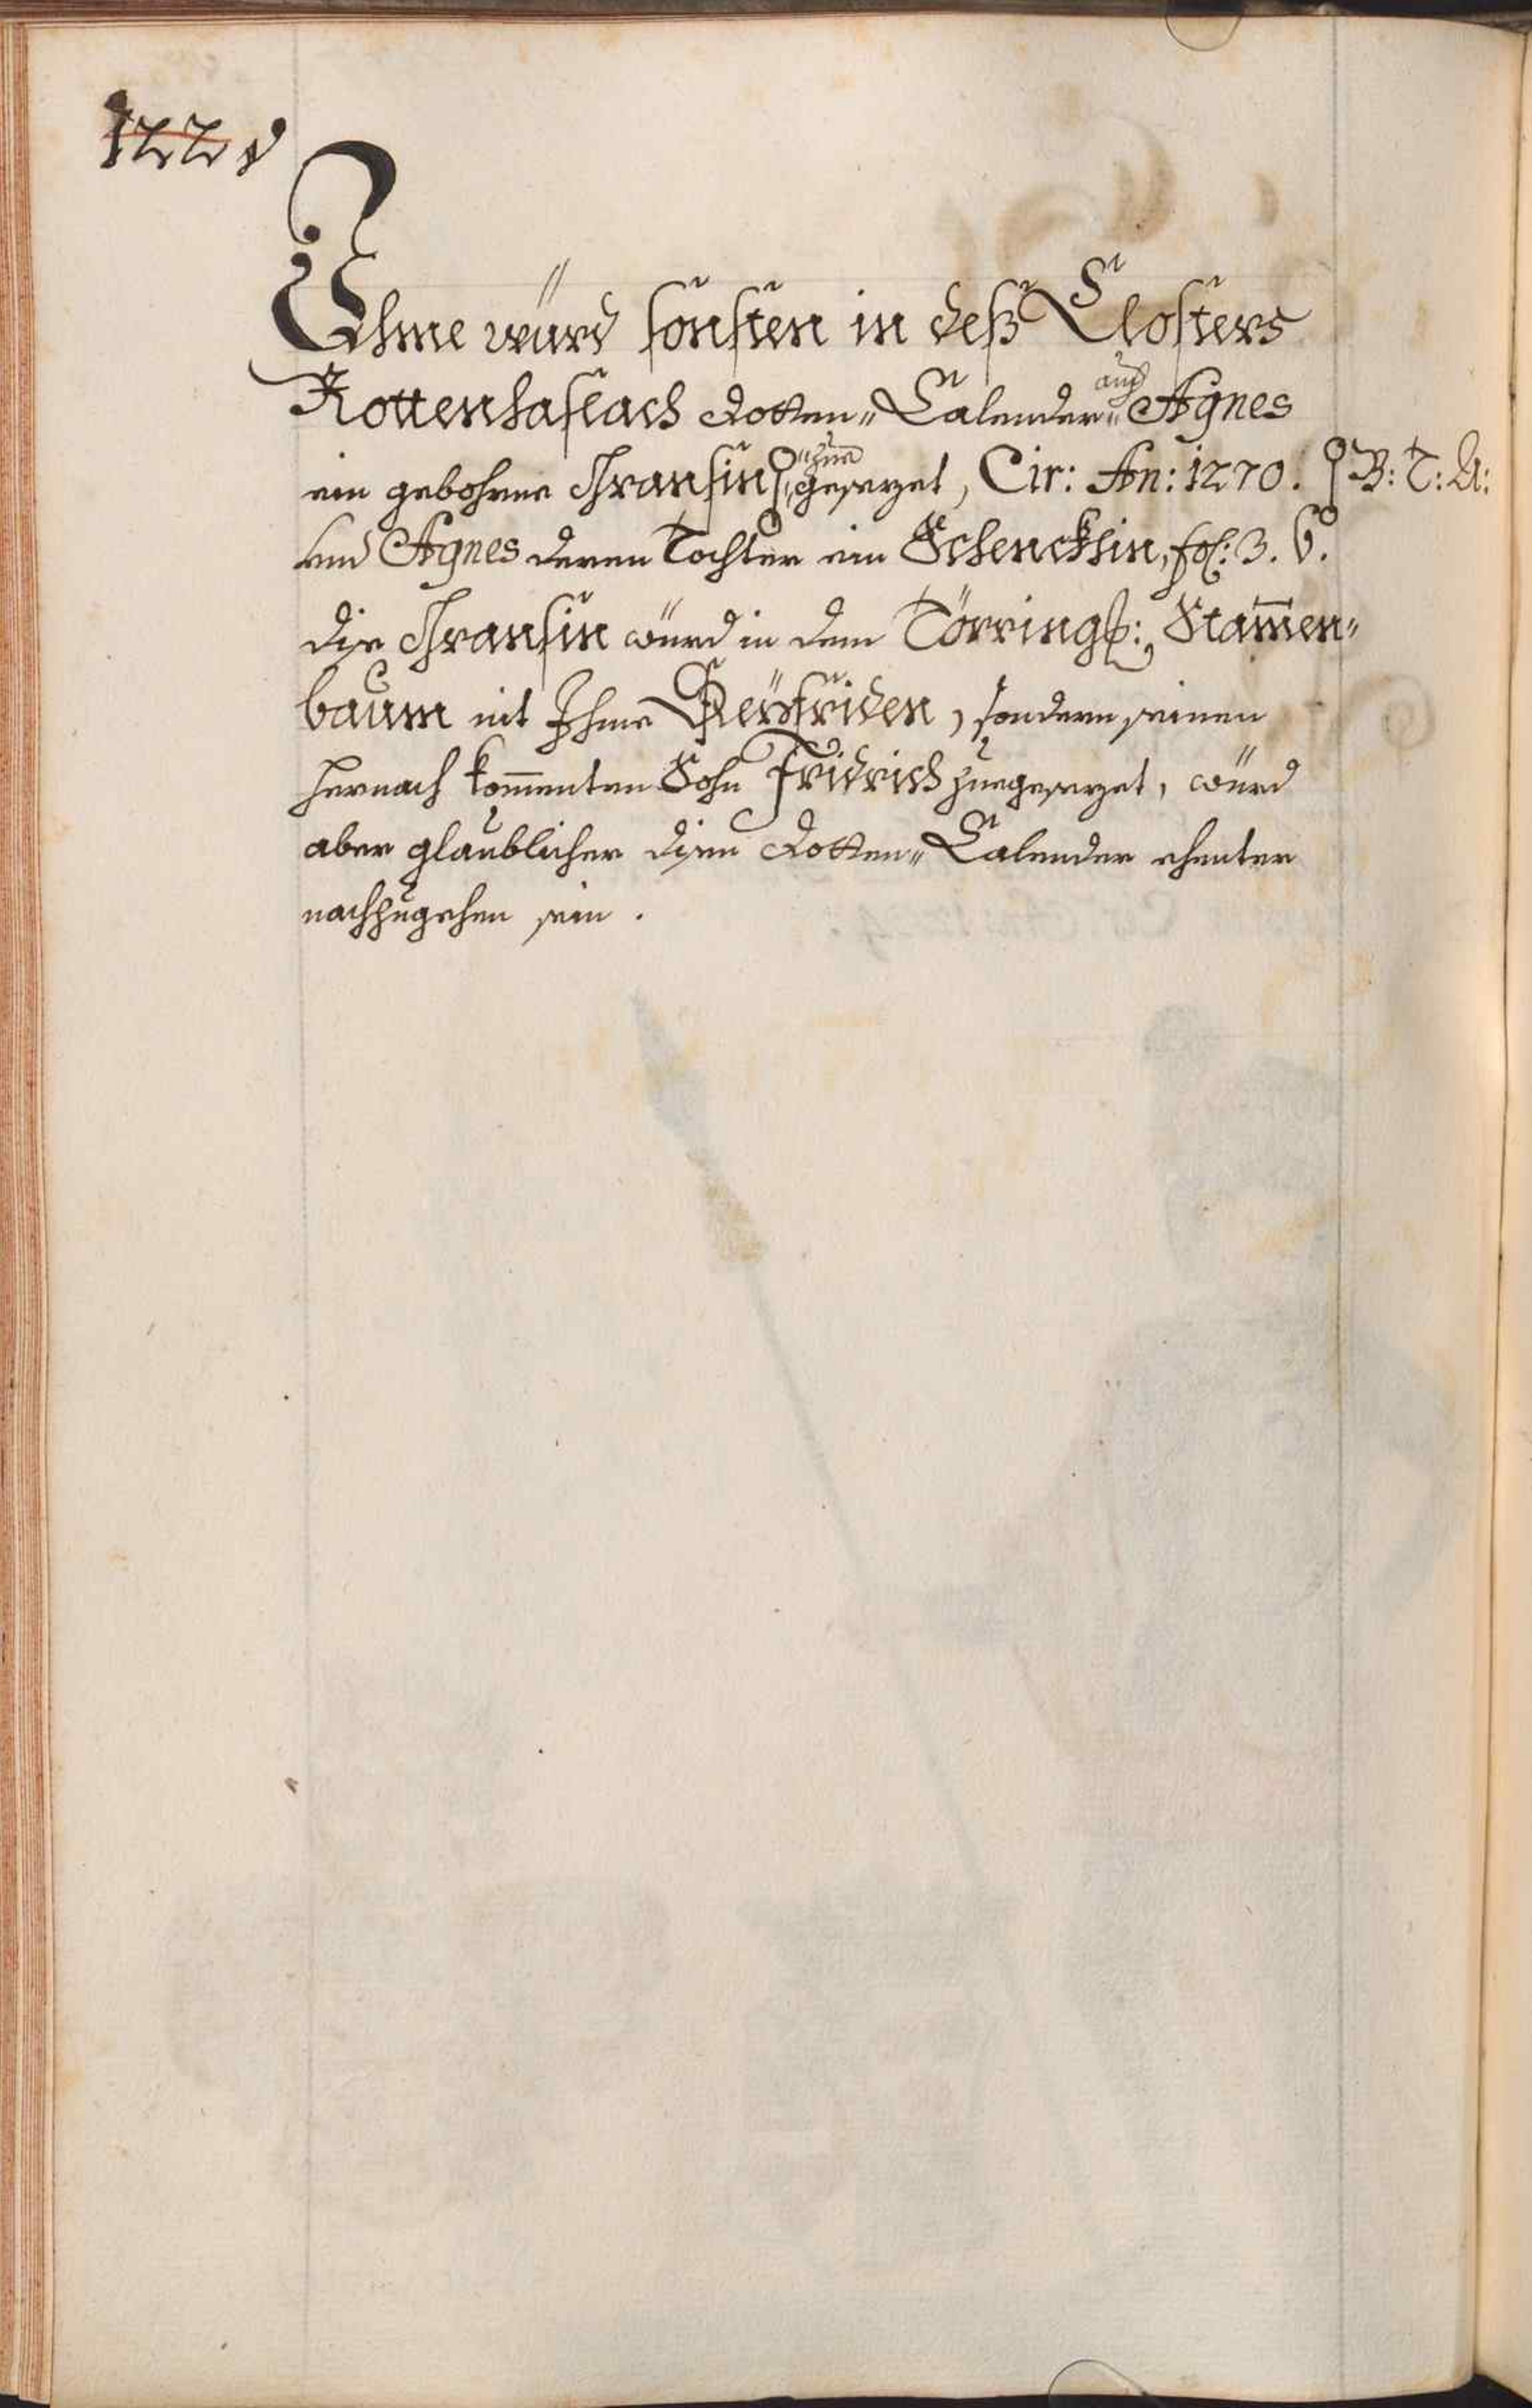 122 v
Ihme würd sonsten in deß Closters
Rottenhaslach Dotten„ Calender„ auch Agnes
ein gebohrne Thransin zue„gesezet, Cir: An: 1270. B: T: A:
und Agnes deren Tochter ein Schenckhin, fol: 3. b.
dise Thransin würd in dem Törring: Stam̄en„
baum nit Ihme Seÿfriden, sondern seinen
hernach kom̄enten Sohn Fridrich zuegesezet, würd
aber glaublicher disen Dotten„ Calender ehenter
nachzugehen sein.